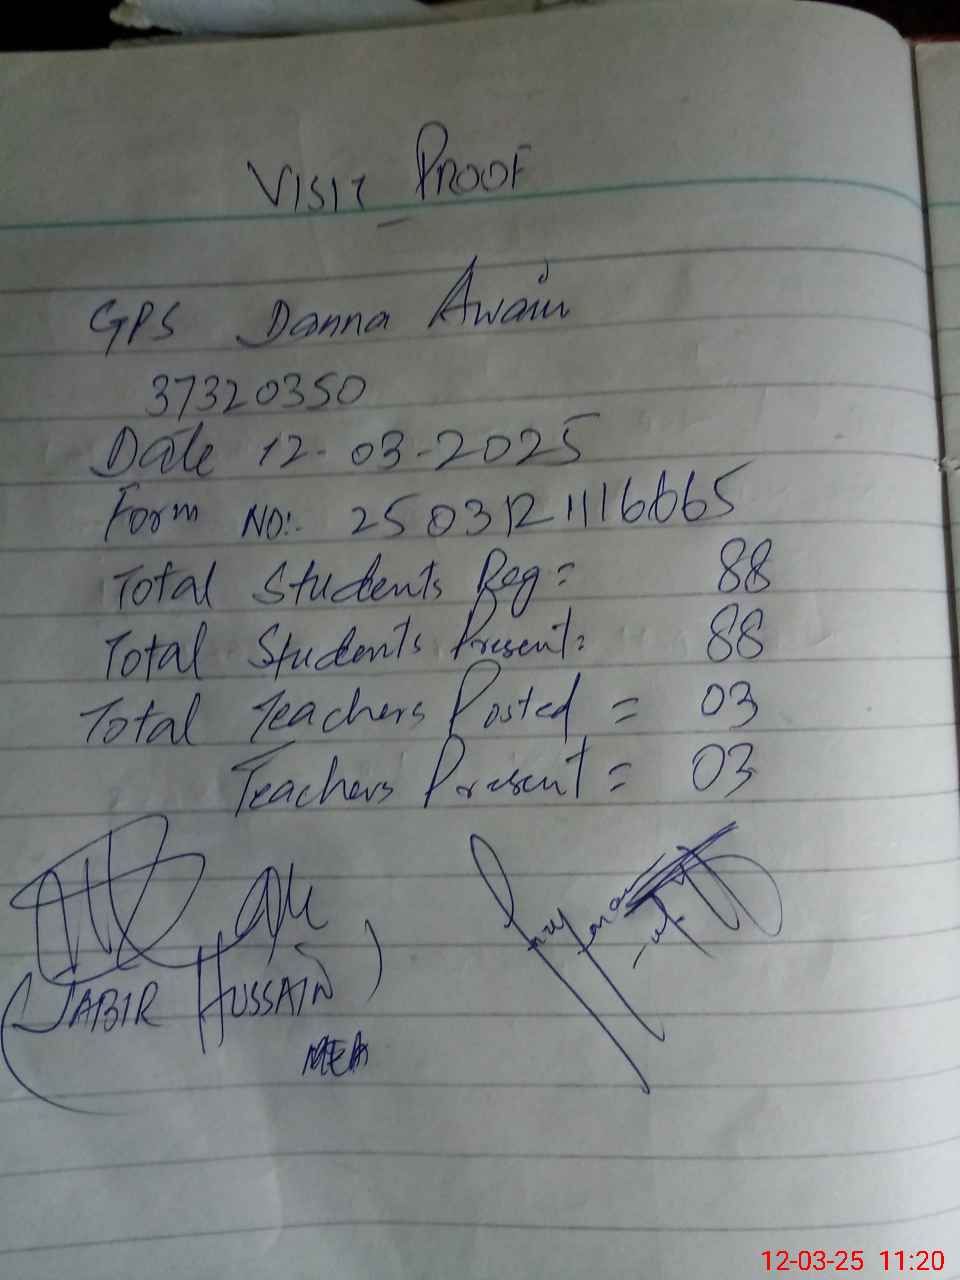 VISIT PROOF
GPS Danna Awain
37320350
Date 12-03-2025
Form NO:- 2503121116665
Total Students Reg = 88
Total Students Present = 88
Total Teachers Posted = 03
Teachers Present = 03
(JABIR HUSSAIN)
MEA
12-03-25 11:20